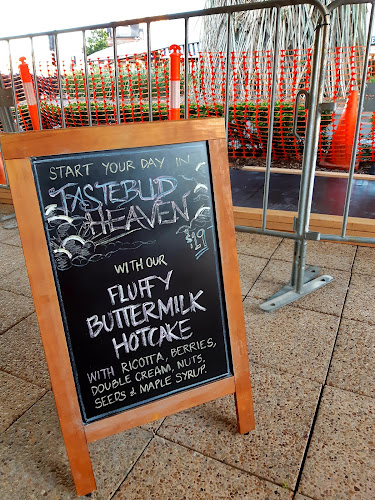 START YOUR DAY IN
TASTEBUD
HEAVEN
$19
WITH OUR
FLUFFY
BUTTERMILK
HOTCAKE
WITH RICOTTA, BERRIES,
DOUBLE CREAM, NUTS,
SEEDS & MAPLE SYRUP.